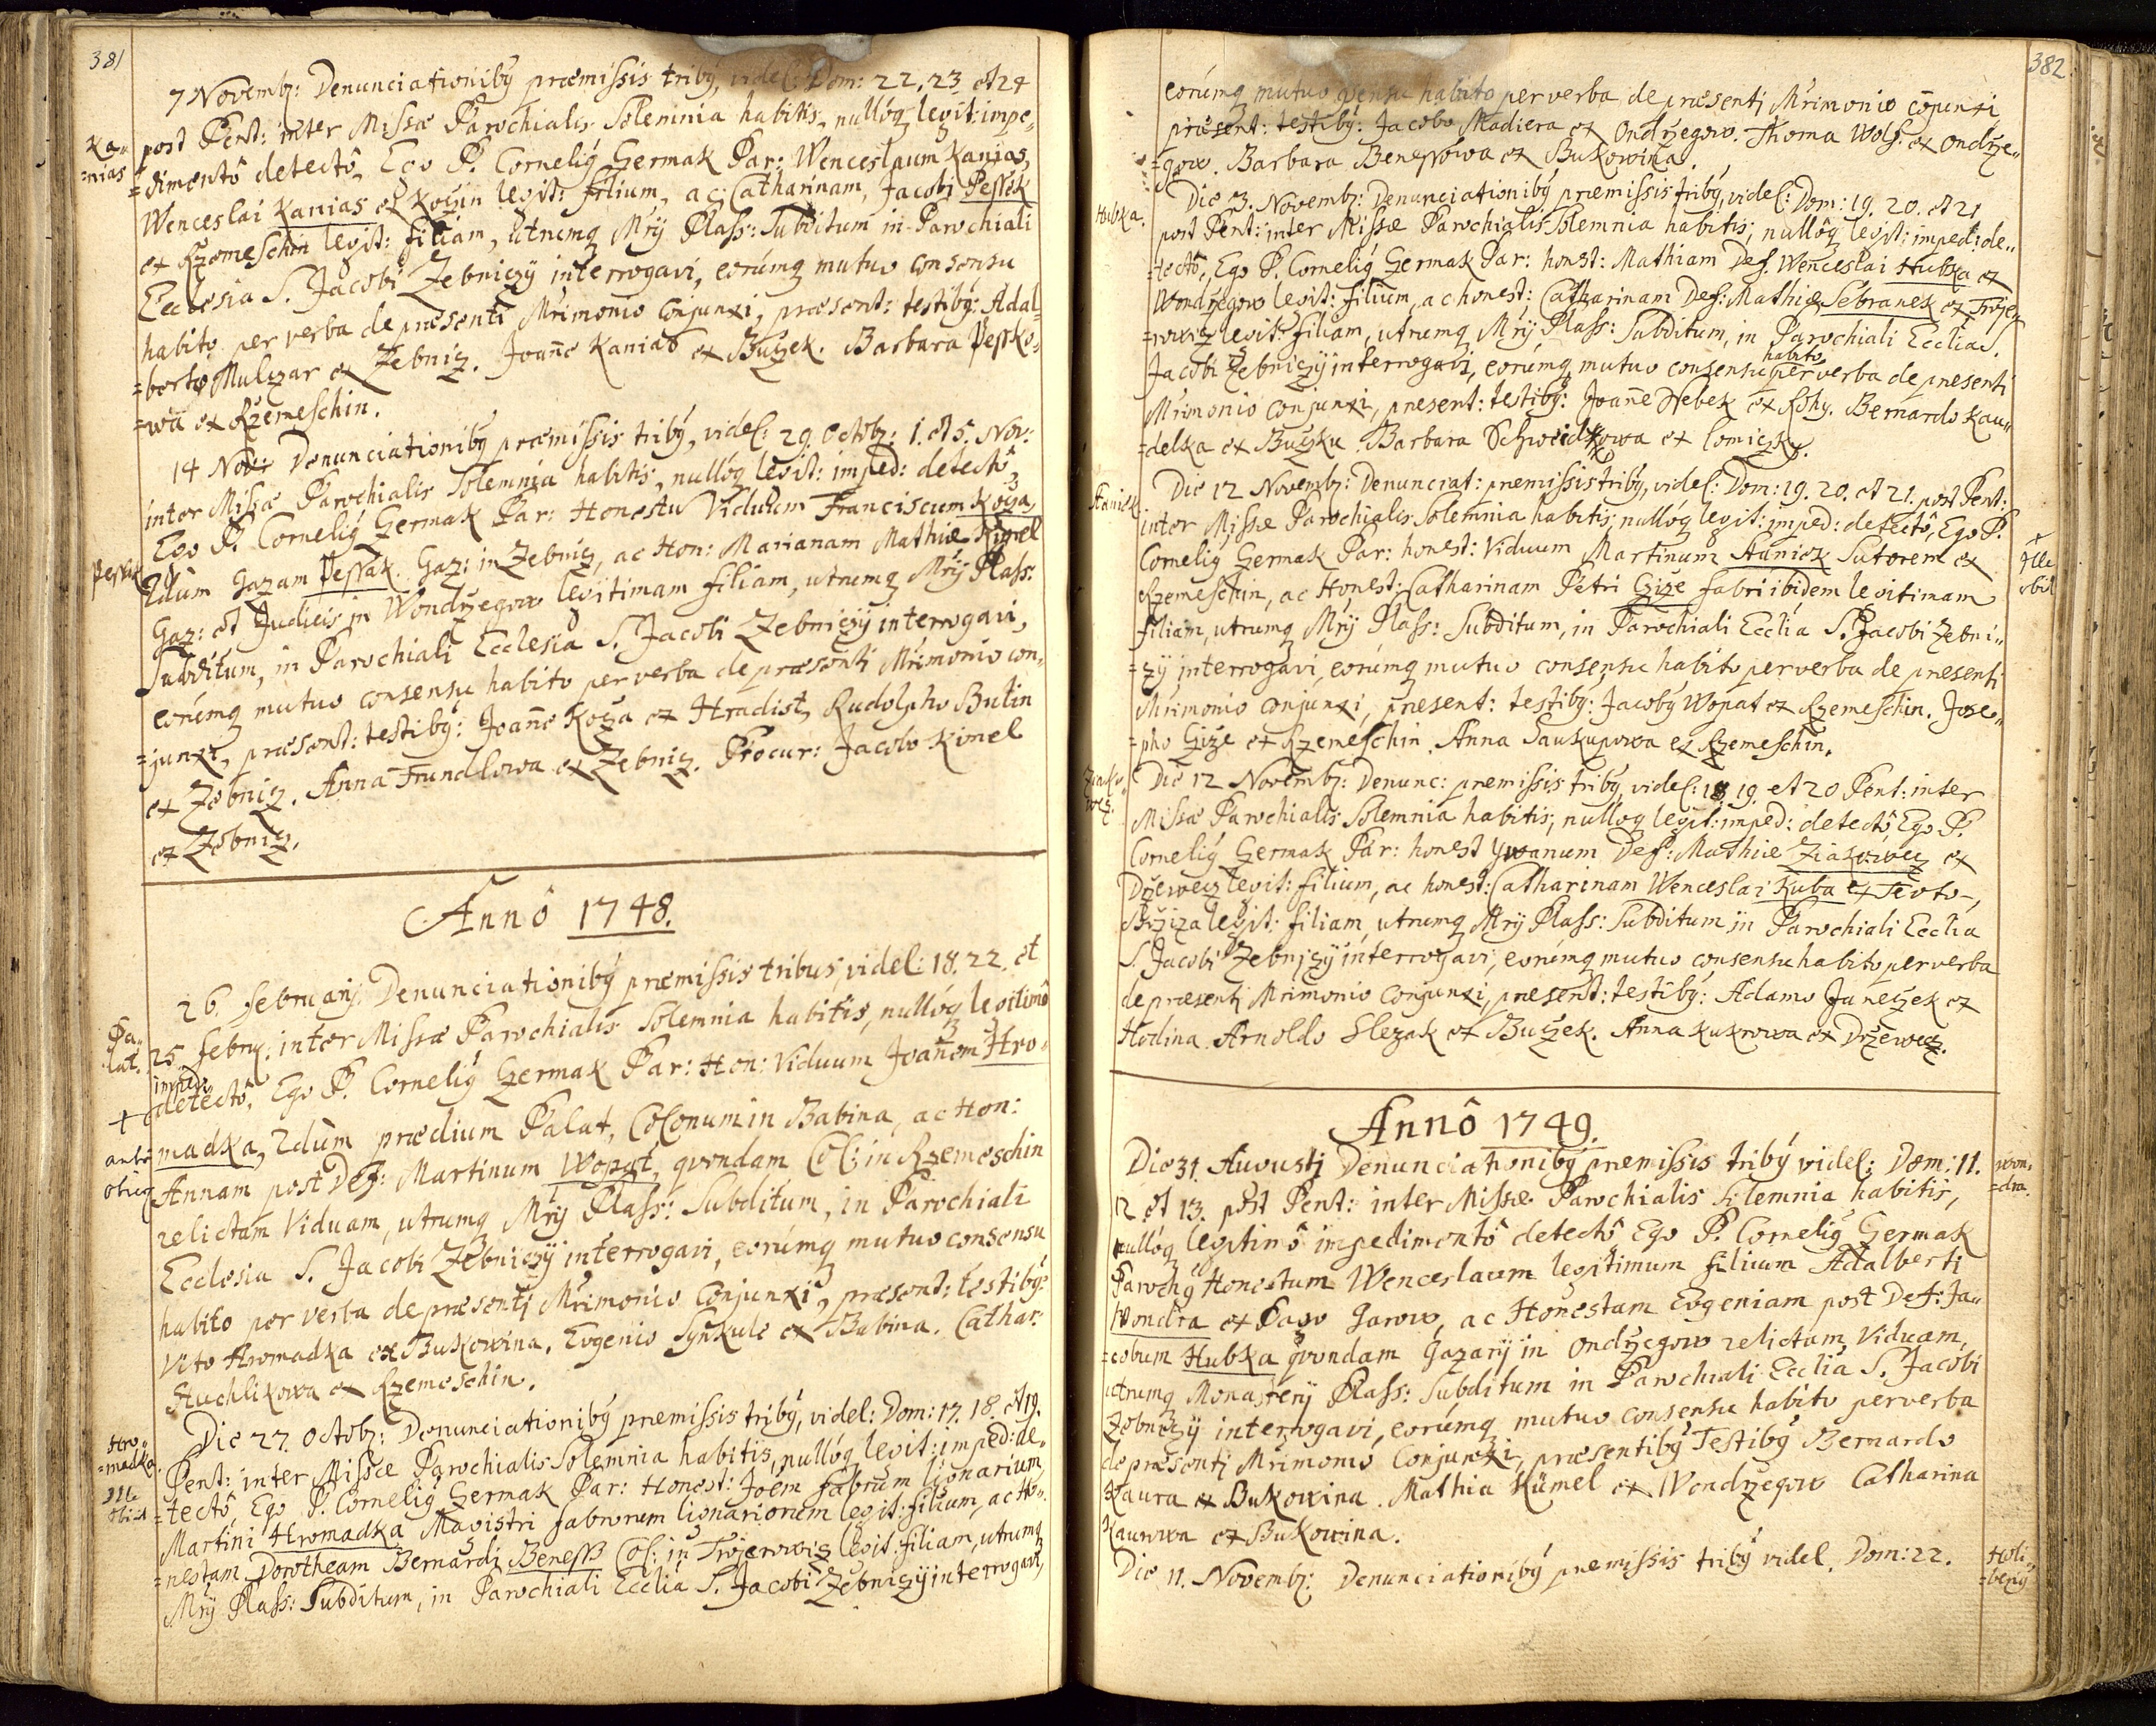 381
7 Novembr: Denunciationibꝯ præmissis tribꝯ, videl: Dom: 22, 23 et 24
Ka-
=nias
post Pent: inter Missæ Parochialis Solemnia habitis, nullóq legit: impe-
=dimentô detectô, Ego P. Corneliꝯ Czermak Par: Wenceslaum Kanias,
Wenceslai Kanias ex Kożin legit: filium, ac Catharinam, Jacobi Pessek
ex Rzemeschin legit: filiam, utrumq Mrÿ Plass: Subditum in Parochiali
Ecclesia S. Jacobi Zebniczÿ interrogavi, eorúmq mutuo consensu
habito per verba de præsenti Mrimonio Conjunxi, præsent: testibꝯ: Adal-
=berto Mulczar ex Zebnicz. Joañe Kanias ex Buczek. Barbara Pessko-
=wa ex Rzemeschin.
14 Nov: Denunciationibꝯ præmissis tribꝯ, videl: 29. Octobr: 1. et 5. Nov:
inter Missæ Parochialis Solemnia habitis, nullóq legit: imped: detectô,
Ego P. Corneliꝯ Czermak Par: Honestu Viduum Franciscum Koża,
Pessak
2dum Gazam Pessak Gaz: in Zebnicz, ac Hon: Marianam Mathiæ Kimel
Gaz: et Judicis in Wondrzegow legitimam filiam, utrumq Mrÿ Plass:
Subditum, in Parochiali Ecclesia S. Jacobi Zebniczÿ interrogavi,
eorúmq mutuo consensu habito per verba de præsenti Mrimonio con-
=junxi, præsent: testibꝯ: Joañe Koża ex Hradist, Rudolpho Bulin
ex Zebnicz. Anna Frundlowa ex Zebnicz. Procur: Jacobo Kimel
ex Zebnicz.
Annô 1748.
26. Februarij. Denunciationibꝯ præmissis tribus, videl: 18. 22. et
Pa-
lat.
25 Febru: inter Missæ Parochialis Solemnia habitis, nullóq legitimô
imped:
detectô, Ego P. Corneliꝯ Czermak Par: Hon: Viduum Joañem Hro-
+
madka, 2dum prædium Palat, Colonum in Babina, ac Hon:
Annam post Def: Martinum Wopat, quondam Col: in Rzemeschin
relictam Viduam, utrumq Mrÿ Plass: Subditum, in Parochiali
Ecclesia S. Jacobi Zebniczÿ interrogavi, eorúmq mutuo consensu
habito per verba de præsentj Mrimonio Conjunxi, præsent: testibꝯ:
Vito Hromadka ex Bukowina, Eugenio Synkule ex Babina. Cathar:
Huchlikowa ex Rzemeschin.
Die 27. Octobr: Denunciationibꝯ præmissis tribꝯ, videl: Dom: 17. 18. et 19.
Hro-
=madka.
Pent: inter Missæ Parochialis Solemnia habitis, nullóq legit: imped: de-
Ille
obiit
=tectô, Ego P. Corneliꝯ Czermak Par: Honest: Joëm fabrum lignarium
Martini Hromadka Magistri fabrorum lignariorum legit: filium, ac Ho-
=nestam Dorotheam Bernardj Benessß Col: in Trojerowicz legit: filiam, utrumq
Mrÿ Plass: Subditum, in Parochiali Ecclia S. Jacobi Zebniczÿ interrogavi,
382
eorúmq mutuo consensu habito per verba de præsentj Mrimonio cõjunxi
præsent: testibꝯ: Jacobo Madiera ex Ondrzegow. Thoma Wolf ex Ondrze-
=gow. Barbara Benessowa ex Bukowina.
Die 3. Novembr: Denunciationibꝯ præmissis tribꝯ, videl: Dom: 19. 20. et 21
Hubka.
post Pent: inter Missæ Parochialis Solemnia habitis, nullôq legit: imped: de-
=tectô, Ego P. Corneliꝯ Czermak Par: honest: Mathiam Def. Wenceslai Hubka ex
Wondrzegow legit: filium, ac honest: Catharinam Def: Mathiæ Sebranek ex Trojer
=rowicz legit: filiam, utrumq Mrÿ Plass: Subditum, in Parochiali Ecclia S.
Jacobi Zebniczÿ interrogavi, eorúmq mutuo consensu habito per verba de præsenti
Mrimonio conjunxi, præsent: testibꝯ: Joañe Hebek ex Rohy. Bernardo Kau-
=delka ex Buczku. Barbara Schweidkowa ex Lomiczky.
Die 12 Novembr: Denunciat: præmissis tribꝯ, videl: Dom: 19. 20. et 21. post Pent:
Staniek
inter Missæ Parochialis Solemnia habitis, nullóq legit: imped: detectô, Ego P.
Corneliꝯ Czermak Par: honest: Viduum Martinum Staniek Sutorem ex
+
Ille
obiit
Rzemeschin, ac Honest: Catharinam Petri Cziże fabri ibidem legitimam
filiam, utrumq Mrÿ Plass: Subditum, in Parochiali Ecclia S. Jacobi Zebni-
=zÿ interrogavi, eorúmq mutuo consensu habito per verba de præsenti
Mrimonio conjunxi, præsent: testibꝯ: Jacobꝯ Wopat ex Rzemeschin. Jose-
=pho Cziże ex Rzemeschin. Anna Saukupowa ex Rzemeschin.
Die 12 Novembr: Denunc: præmissis tribꝯ, videl: 18 19. et 20 Pent: inter
Missæ Parochialis Solemnia habitis, nullóq legit: imped: detectô, Ego P.
Corneliꝯ Czermak Par: honest Ywanum Def: Mathiæ Ziakowecz ex
Drżewecz legit: filium, ac honest: Catharinam Wenceslai Kuba ex Teoto-
Brziza legit: filiam, utrumq Mrÿ Plass: Subditum in Parochiali Ecclia
S. Jacobi Zebniczÿ interrogavi, eorúmq mutuo consensu habito per verba
de præsentj Mrimonio Conjunxi, præsent: testibꝯ: Adamo Janeczek ex
Hodina. Arnoldo Slezak ex Buczek. Anna Kukrowa ex Drżewecz.
Annô 1749.
Die 31. Augustj Denunciationibꝯ præmissis tribꝯ videl: Dom: 11.
Won-
=dra.
12 et 13. post Pent: inter Missæ Parochialis Solemnia habitis,
nullóq legitimô impedimentô detectô Ego P. Corneliꝯ Czermak
Parochꝯ Honestum Wenceslaum legitimum filium Adalberti
Wondra ex Pago Jarow, ac Honestam Eugeniam post Def: Ja-
=cobum Hubka quondam Gazarÿ in Ondrzegow relictam Viduam,
utrumq Monasterÿ Plass: Subditum in Parochiali Ecclia S. Jacobi
Zebniczÿ interrogavi, eorúmq mutuo consensu habito per verba
de præsentj Mrimonio Conjunxi, præsentibꝯ Testibꝯ Bernardo
Kaura ex Bukowina. Mathia Kümel ex Wondrzegow Catharina
Kaurowa ex Bukowina.
Die 11. Novembr: Denunciationibꝯ præmissis tribꝯ videl. Dom: 22.